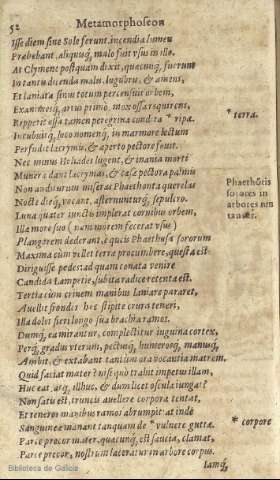 52 Metamorphoseon
Isse diem sine Sole ferunt, incendia lumen
Præbebant, aliquisq, malo fuit vsus in illo.
At Clymene postquam dixit, quæcunq, fuerunt
In tantis dicenda malis, lugubris, & amens,
Et laniata sinus totum percensuit orbem,
Exanimesq, artus primò, mox ossa requirens,
Repperit ossa tamen peregrina condita * ripa.
* terra.
Incubuitq, loco nomenq, in marmore lectum
Perfudit lacrymis, & aperto pectore fouit.
Nec minus Heliades lugent, & inania morti
Munera dant lacrymas, & cæsæ pectora palmis
Non auditurum miseras Phaethonta querelas
Nocte dieq, vocant, asternunturq, sepulcro.
Phaethōtis
sorores in
arbores mu
tantur.
Luna quater iunctis implerat cornibus orbem,
Illa more suo (nam morem fecerat vsus)
Plangorem dederant, è queis Phaethusa sororum
Maxima cùm vellet terra procumbere, questa est
Diriguisse pedes: ad quam conata venire
Candida Lampetie, subita radice retenta est.
Tertia cùm crinem manibus laniare pararet,
Auellit frondes: hæc stipite crura teneri,
Illa dolet fieri longos sua brachia ramos.
Dumq, ea mirantur, complectitur inguina cortex,
Perq, gradus vterum, pectusq, humerosq, manusq,
Ambit, & extabant tantùm ora vocantia matrem,
Quid faciat mater? nisi quò trahit impetus illam,
Huc eat, atq, illhuc, & dum licet oscula iungat?
Non satis est, truncis auellere corpora tentat,
Et teneros manibus ramos abrumpit: at inde
Sanguineæ manant tanquam de * vulnere guttæ.
* corpore
Parce precor mater, quæcunq, est saucia, clamat,
Parce precor, nostrum laceratur in arbore corpus.
Iamq,
Biblioteca de Galicia